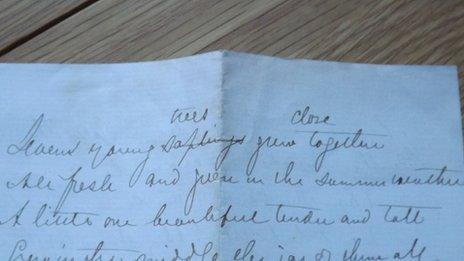 trees close
Sevens young saplings grew together
All fresh and green in the summer weather
A little one beautiful tender and tall
Grew in the middle of them all